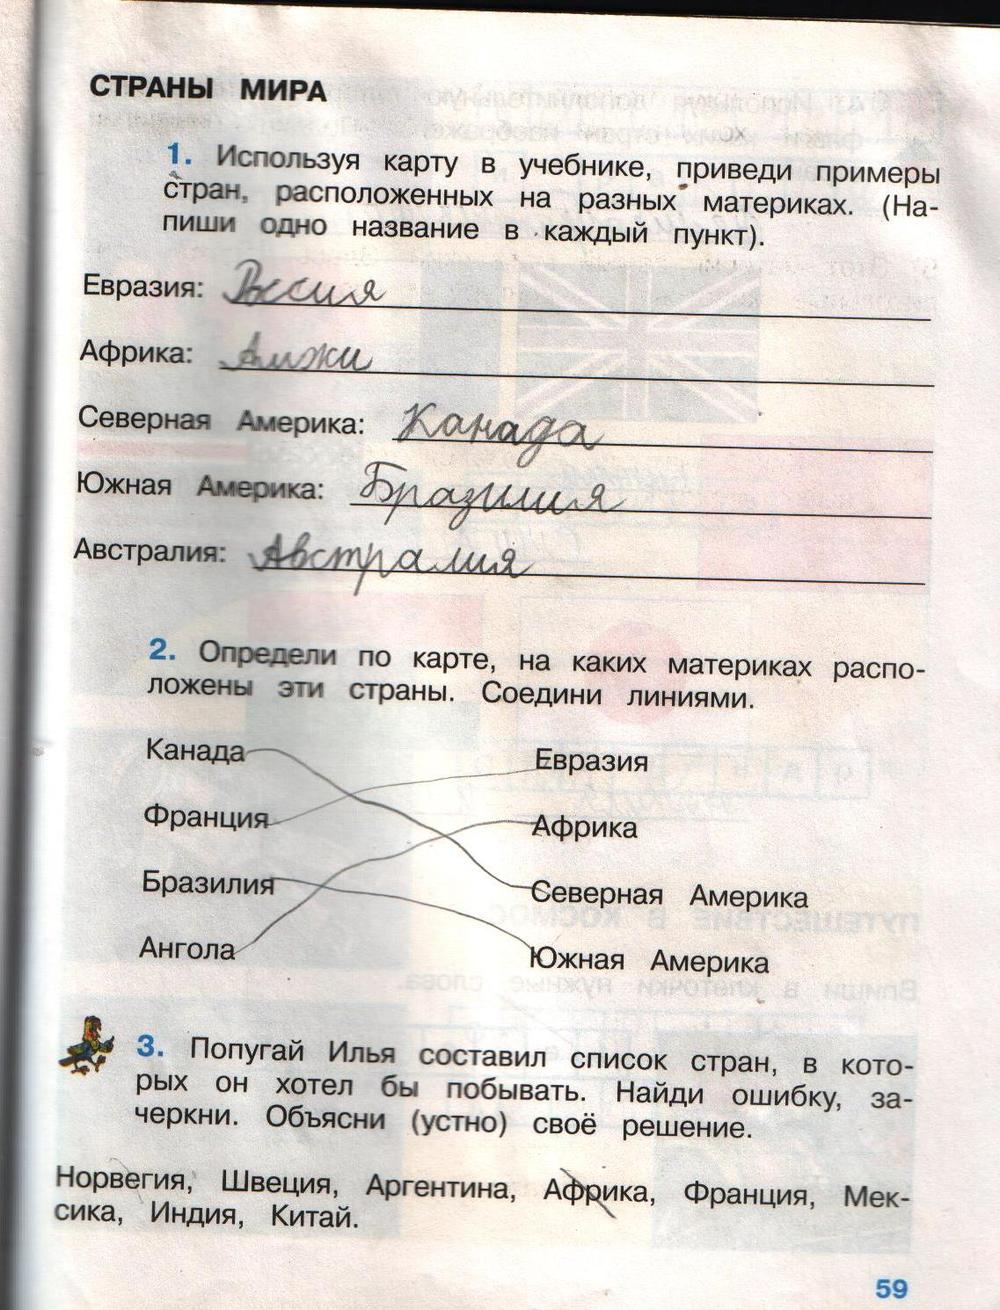 СТРАНЫ МИРА
1. Используя карту в учебнике, приведи примеры
стран, расположенных на разных материках. (На-
пиши одно название в каждый пункт).
Евразия: Россия
Африка: Алжи
Северная Америка: Канада
Южная Америка: Бразилия
Австралия: Австралия
2. Определи по карте, на каких материках распо-
ложены эти страны. Соедини линиями.
Канада Евразия
Франция Африка
Бразилия Северная Америка
Ангола Южная Америка
3. Попугай Илья составил список стран, в кото-
рых он хотел бы побывать. Найди ошибку, за-
черкни. Объясни (устно) своё решение.
Норвегия, Швеция, Аргентина, Африка, Франция, Мек-
сика, Индия, Китай.
59